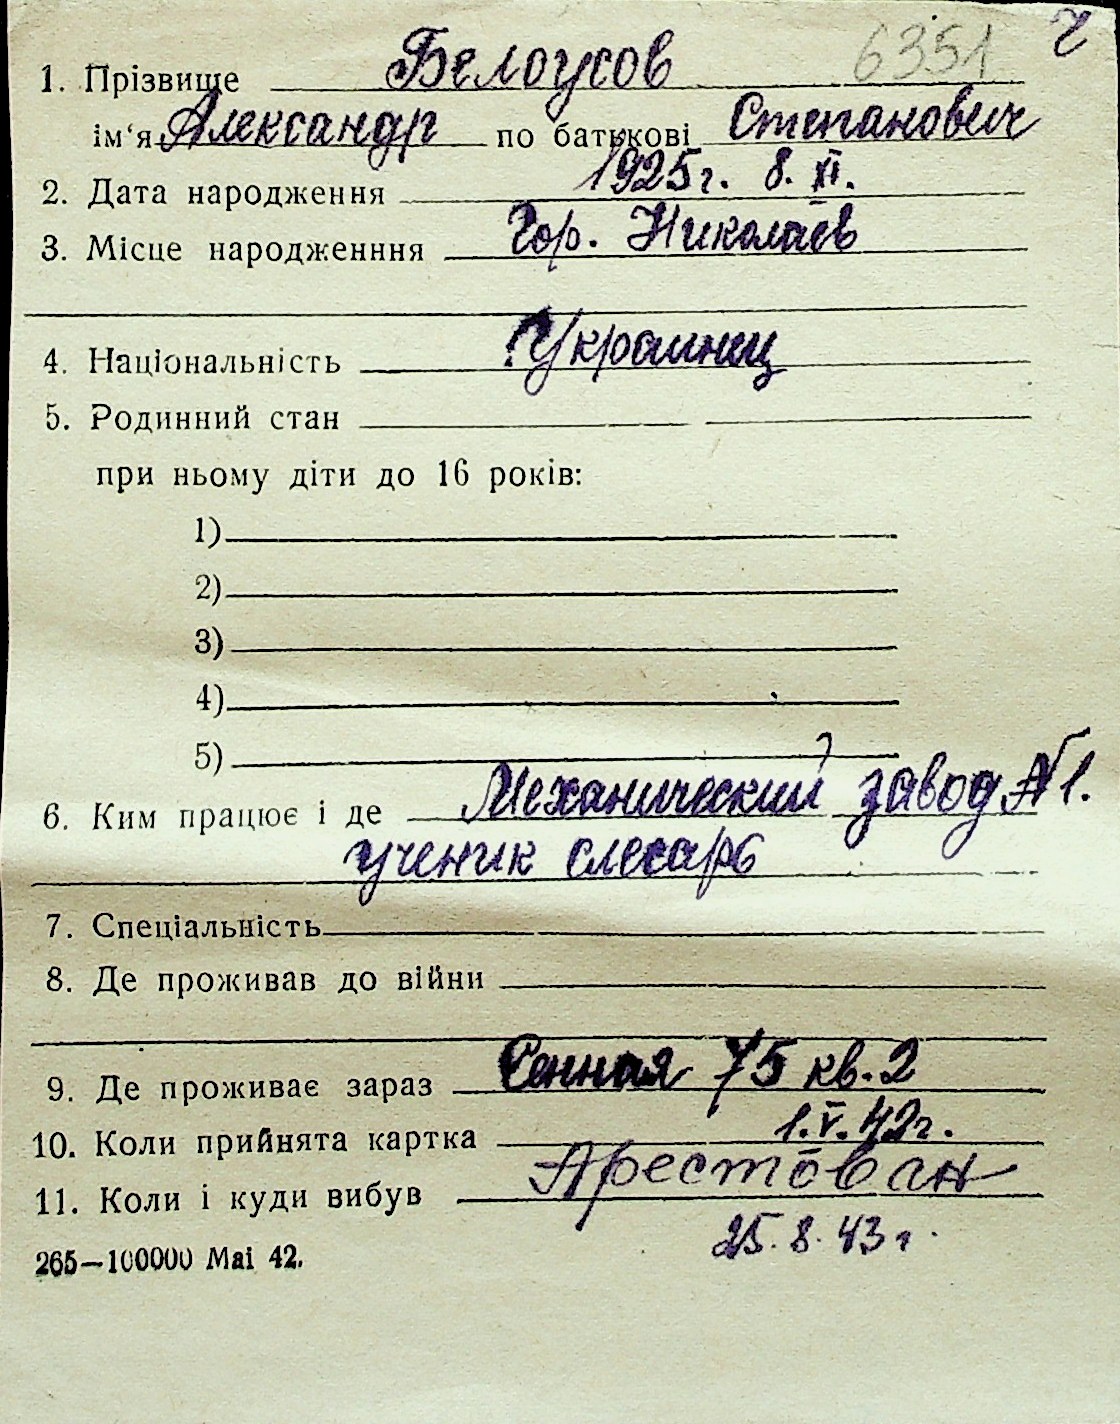 6351 Ч
1. Прізвище Белоусов
ім'я Александр по батькові Степанович
2. Дата народження 1925 г. 8. XI.
3. Місце народженння Гор. Николаев
4. Національність Украинец
5. Родинний стан
при ньому діти до 16 років:
1)
2)
3)
4)
5)
6. Ким працює і де Механический завод №1.
ученик слесарь
7. Спеціальність
8. Де проживав до війни
9. Де проживає зараз Сенная 75 кв. 2
10. Коли прийнята картка 1. V. 42 г.
11. Коли і куди вибув Арестован
25. 8. 43 г.
265—100000 Mai 42.